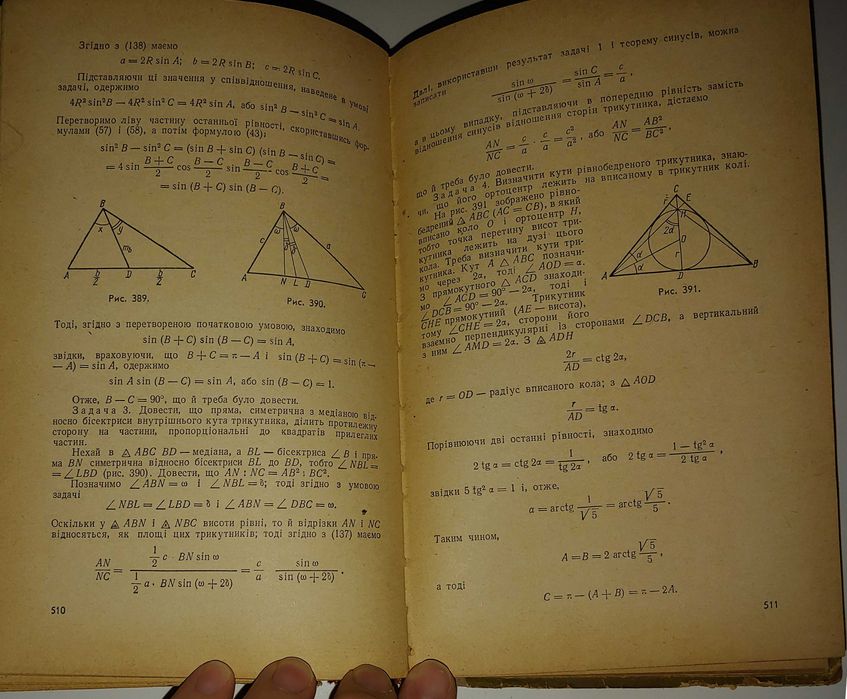 Згідно з (138) маємо
a = 2R sin A; b = 2R sin B; c = 2R sin C.
Підставляючи ці значення у співвідношення, наведене в умові
задачі, одержимо
4R² sin² B — 4R² sin² C = 4R² sin A, або sin² B — sin² C = sin A.
Перетворимо ліву частину останньої рівності, скориставшись фор-
мулами (57) і (58), а потім формулою (43):
sin² B — sin² C = (sin B + sin C) (sin B — sin C) =
= 4 sin (B + C)/2 cos (B — C)/2 sin (B — C)/2 cos (B + C)/2 =
= sin (B + C) sin (B — C).
B
x y
m_b
A b/2 D b/2 C
Рис. 389.
B
ω ω
δ δ
c a
A N L D C
Рис. 390.
Тоді, згідно з перетвореною початковою умовою, знаходимо
sin (B + C) sin (B — C) = sin A,
звідки, враховуючи, що B + C = π — A і sin (B + C) = sin (π —
— A) = sin A, одержимо
sin A sin (B — C) = sin A, або sin (B — C) = 1.
Отже, B — C = 90°, що й треба було довести.
Задача 3. Довести, що пряма, симетрична з медіаною від-
носно бісектриси внутрішнього кута трикутника, ділить протилежну
сторону на частини, пропорціональні до квадратів прилеглих
частин.
Нехай в △ ABC BD — медіана, а BL — бісектриса ∠ B і пря-
ма BN симетрична відносно бісектриси BL до BD, тобто ∠ NBL =
= ∠ LBD (рис. 390). Довести, що AN : NC = AB² : BC².
Позначимо ∠ ABN = ω і ∠ NBL = δ; тоді згідно з умовою
задачі
∠ NBL = ∠ LBD = δ і ∠ ABN = ∠ DBC = ω.
Оскільки у △ ABN і △ NBC висоти рівні, то й відрізки AN і NC
відносяться, як площі цих трикутників; тоді згідно з (137) маємо
AN/NC = (1/2 c · BN sin ω)/(1/2 a · BN sin (ω + 2δ)) = c/a · sin ω/sin (ω + 2δ).
510
Далі, використавши результат задачі 1 і теорему синусів, можна
записати
sin ω/sin (ω + 2δ) = sin C/sin A = c/a,
а в цьому випадку, підставляючи в попередню рівність замість
відношення синусів відношення сторін трикутника, дістаємо
AN/NC = c/a · c/a = c²/a², або AN/NC = AB²/BC²,
що й треба було довести.
Задача 4. Визначити кути рівнобедреного трикутника, знаю-
чи, що його ортоцентр лежить на вписаному в трикутник колі.
На рис. 391 зображено рівно-
бедрений △ ABC (AC = CB), в який
вписано коло O і ортоцентр H,
тобто точка перетину висот три-
кутника лежить на дузі цього
кола. Треба визначити кути три-
кутника. Кут A △ ABC позначи-
мо через 2α, тоді ∠ AOD = α.
З прямокутного △ ACD знаходи-
мо ∠ ACD = 90° — 2α, тоді і
∠ DCB = 90° — 2α. Трикутник
CHE прямокутний (AE — висота),
тому ∠ CHE = 2α, сторони його
взаємно перпендикулярні із сторонами ∠ DCB, а вертикальний
з ним ∠ AMD = 2α. З △ ADH
C
F E
H
2α
O
α
α
r
A D B
Рис. 391.
2r/AD = ctg 2α,
де r = OD — радіус вписаного кола; з △ AOD
r/AD = tg α.
Порівнюючи дві останні рівності, знаходимо
2 tg α = ctg 2α = 1/tg 2α, або 2 tg α = (1 — tg² α)/(2 tg α),
звідки 5 tg² α = 1 і, отже,
α = arctg 1/√5 = arctg √5/5.
Таким чином,
A = B = 2 arctg √5/5,
а тоді
C = π — (A + B) = π — 2A.
511